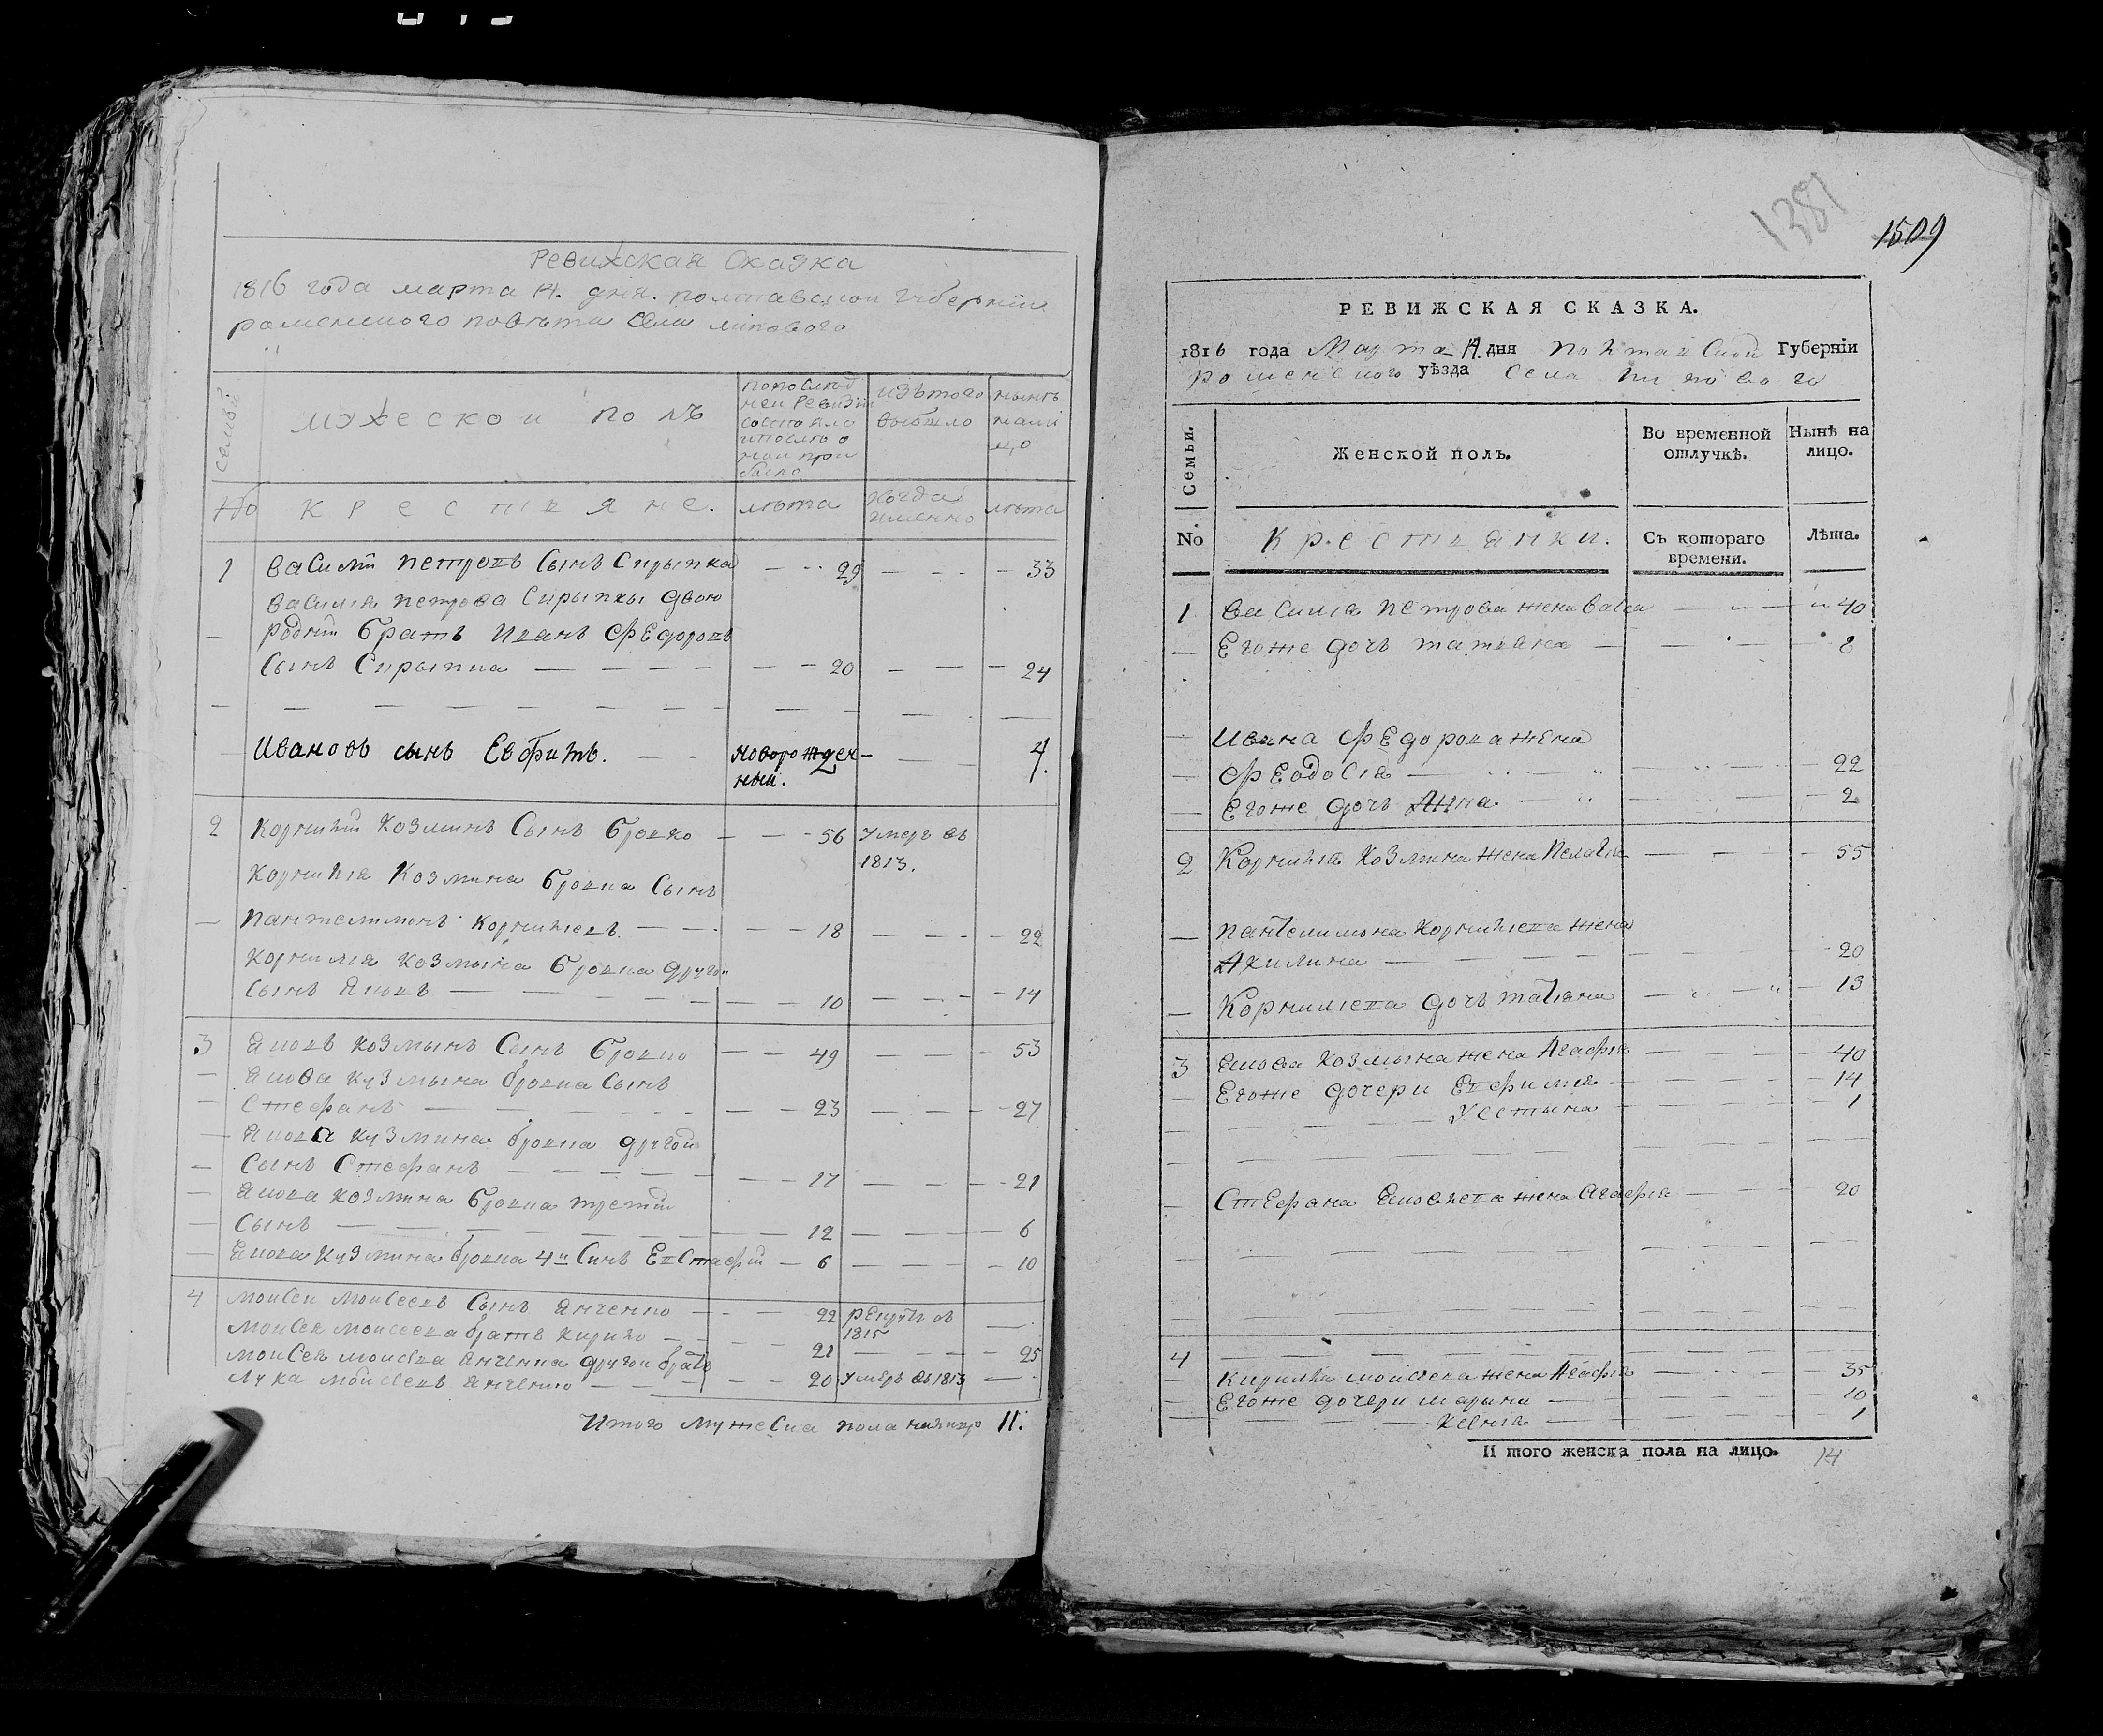 Ревижская Сказка
1816 года марта 14. дня. полтавской губернии
роменского повѣта села липового
семьи
мужеской полъ
по послѣд
ней Ревизіи
состояло
и послѣ о
ной при
было
изъ того
выбыло
нынѣ
на ли
цо
No
крестьяне.
лѣта
когда
именно
лѣта
1 Василій петровъ Сынъ Скрыпка — 29 — — 33
Василія петрова Скрыпки двою
родній братъ Иванъ Федоровъ
Сынъ Скрыпка — — 20 — — 24
Ивановъ сынъ Евфимъ. — новорожден-
ный. 2 — 4.
2 Корнилій Козминъ Сынъ Бровко — 56 умеръ въ
1813.
Корнилія Козмина Бровка Сынъ
пантелимонъ Корниліевъ — — 18 — — 22
Корнилія Козмына Бровка другои
Сынъ Яковъ — — 10 — — 14
3 Яковъ Козмынъ Сынъ Бровко — 49 — — 53
Якова Кузмына Бровка Сынъ
Стефанъ — — 23 — — 27
Якова Кузмина бровка другой
Сынъ Стефанъ — — 17 — — 21
Якова Козмина Бровка третій
Сынъ — — 12 — — 6
Якова Кузмина бровка 4й Синъ Евстафій — 6 — — 10
4 Моисеи Моисеевъ Сынъ Янченко — 22 рекрутъ въ
1815 —
Моисея Моисеева братъ Кирило — — 21 — — 25
Моисея моисева Янченка другои братъ
Лука Мойсеевъ Янченко — — 20 умеръ въ 1813 —
Итого Мужеска пола налицо 11.
1381
1509
РЕВИЖСКАЯ СКАЗКА.
1816 года Марта 14 дня Полтавской Губерніи
роменского уѣзда Села липового
Семьи.
Женской полъ.
Во временной
отлучкѣ.
Нынѣ на
лицо.
No
Крестьянки.
Съ котораго
времени.
Лѣта.
1 Василія петрова жена Васса — 40
Егоже дочь татьяна — 8
Ивана Федорова жена
Феодосія — 22
Егоже дочь Анна. — 2
2 Корнилія Козмина жена Пелагія — 55
пантелимона Корниліева жена
Акилина — 20
Корниліева дочь татіяна — 13
3 Якова Козмына жена Агафія — 40
Егоже дочери Евфимия — 14
Устына — 1
Стефана Яковлева жена Агафія — 20
4
Кирилла мойсеева жена Агафія — 35
Егоже дочери марына — 10
Ксенія — 1
И того женска пола на лицо. 14